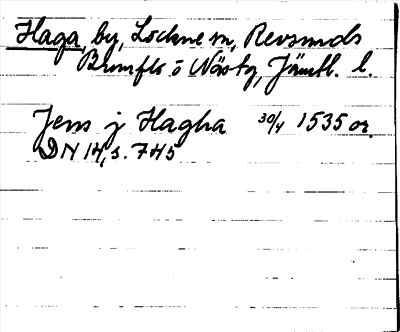 Haga, by, Lockne sn, Revsunds
Brunflo o Näsby, Jämtl. l.
Jens j Hagha 30/4 1535 or.
DN 14, s. 745